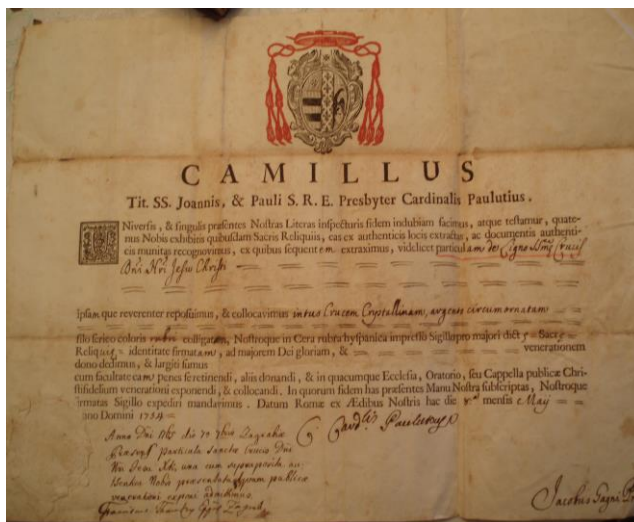 CAMILLUS
Tit. SS. Joannis, & Pauli S. R. E. Presbyter Cardinalis Paulutius.
UNiversis, & singulis præsentes Nostras Literas inspecturis fidem indubiam facimus, atque testamur, quate-
nus Nobis exhibitis quibusdam Sacris Reliquiis, eas ex authenticis locis extractas, ac documentis authenti-
cis munitas recognovimus, ex quibus sequentem extraximus, videlicet particulam de Ligno SSmæ Crucis
Dni Nri Jesu Christi
Ipsam que reverenter reposuimus, & collocavimus intus Crucem Crystallinam, argento circumornatam
filo serico coloris rubri colligatam, Nostroque in Cera rubra hyspanica impresso Sigillo pro majori dict Sac
Reliq identitate firmatam, ad majorem Dei gloriam, & venerationem
dono dedimus, & largiti sumus
cum facultate eam penes se retinendi, aliis donandi, & in quacumque Ecclesia, Oratorio, seu Cappella publicæ Chri-
stifidelium venerationi exponendi, & collocandi. In quorum fidem has præsentes Manu Nostra subscriptas, Nostroque
firmatas Sigillo expediri mandavimus. Datum Romæ ex Ædibus Nostris hac die mensis Maij
ano Domini 1754
C. Cardlis Paulutius
Anno Dni die 70
particula Sanctæ Crucis Dni
Nri Jesu Xti, una cum
Nobis publicæ
venerationi exponi
Jacobus